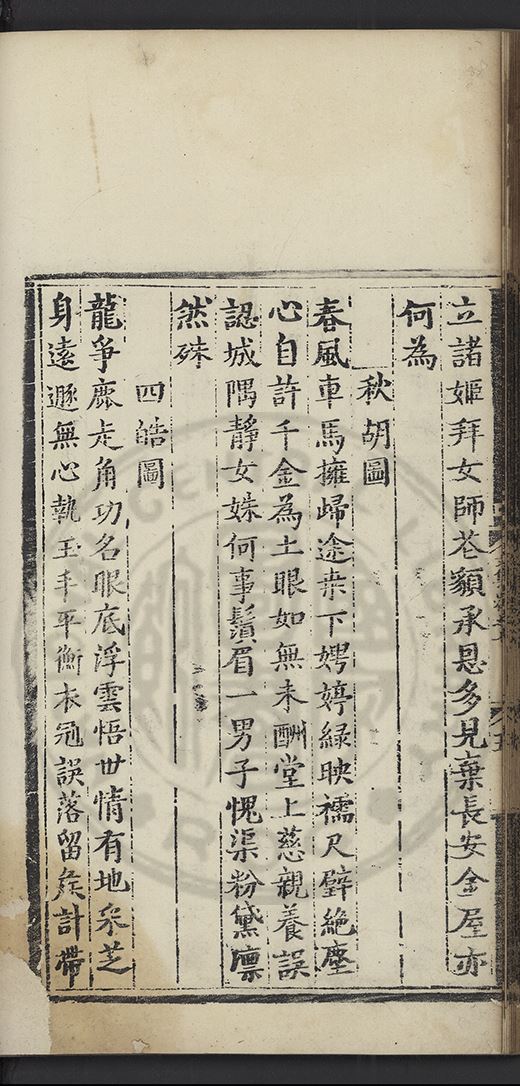 立諸姬拜女師苍顏承恩多見棄長安金屋亦
何為
秋胡圖
春風車馬擁歸途桒下娉婷綠映襦尺璧絶塵
心自許千金為土眼如無未酬堂上慈親養誤
認城隅靜女姝何事鬚眉一男子愧渠粉黛凛
然殊
四皓圖
龍爭鹿走角功名眼底浮雲悟丗情有地采芝
身遠遯無心執玉手平衡衣冠誤落留矦計帶